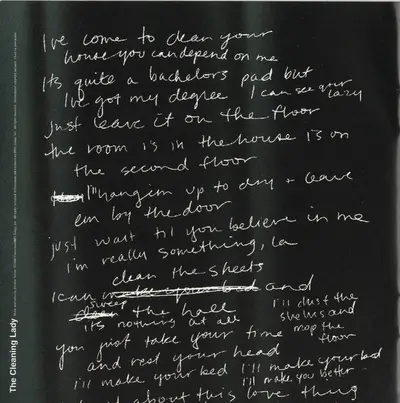 I've come to clean your
house you can depend on me
It's quite a bachelors pad but
I've got my degree I can see your lazy
just leave it on the floor
the room is in the house is on
the second floor
I'll hang em up to dry + leave
em by the door
just wait til you believe in me
I'm really something, la
clean the sheets
I can and
sweep the hall
its nothing at all
you just take your time
and rest your head
I'll dust the
shelves and
mop the
floor
I'll make your bed I'll make your bed
I'll make you better
about this love thing
The Cleaning Lady